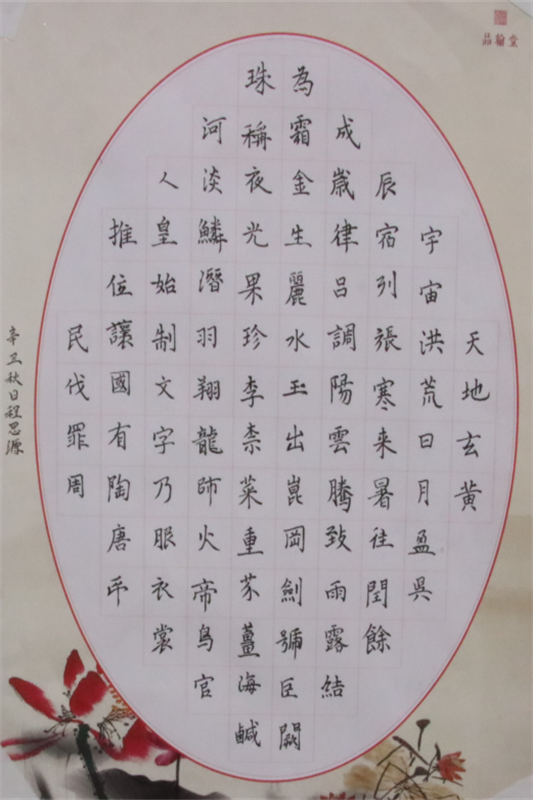 品翰堂
天地玄黄
宇宙洪荒日月盈吳
辰宿列張寒来暑往閏餘
成歳律吕調陽雲騰致雨露結
為霜金生麗水玉出崑岡劍號巨闕
珠稱夜光果珍李柰菜重芥薑海鹹
河淡鱗潛羽翔龍師火帝鳥官
人皇始制文字乃服衣裳
推位讓國有陶唐弔
民伐罪周
辛丑秋日程思源